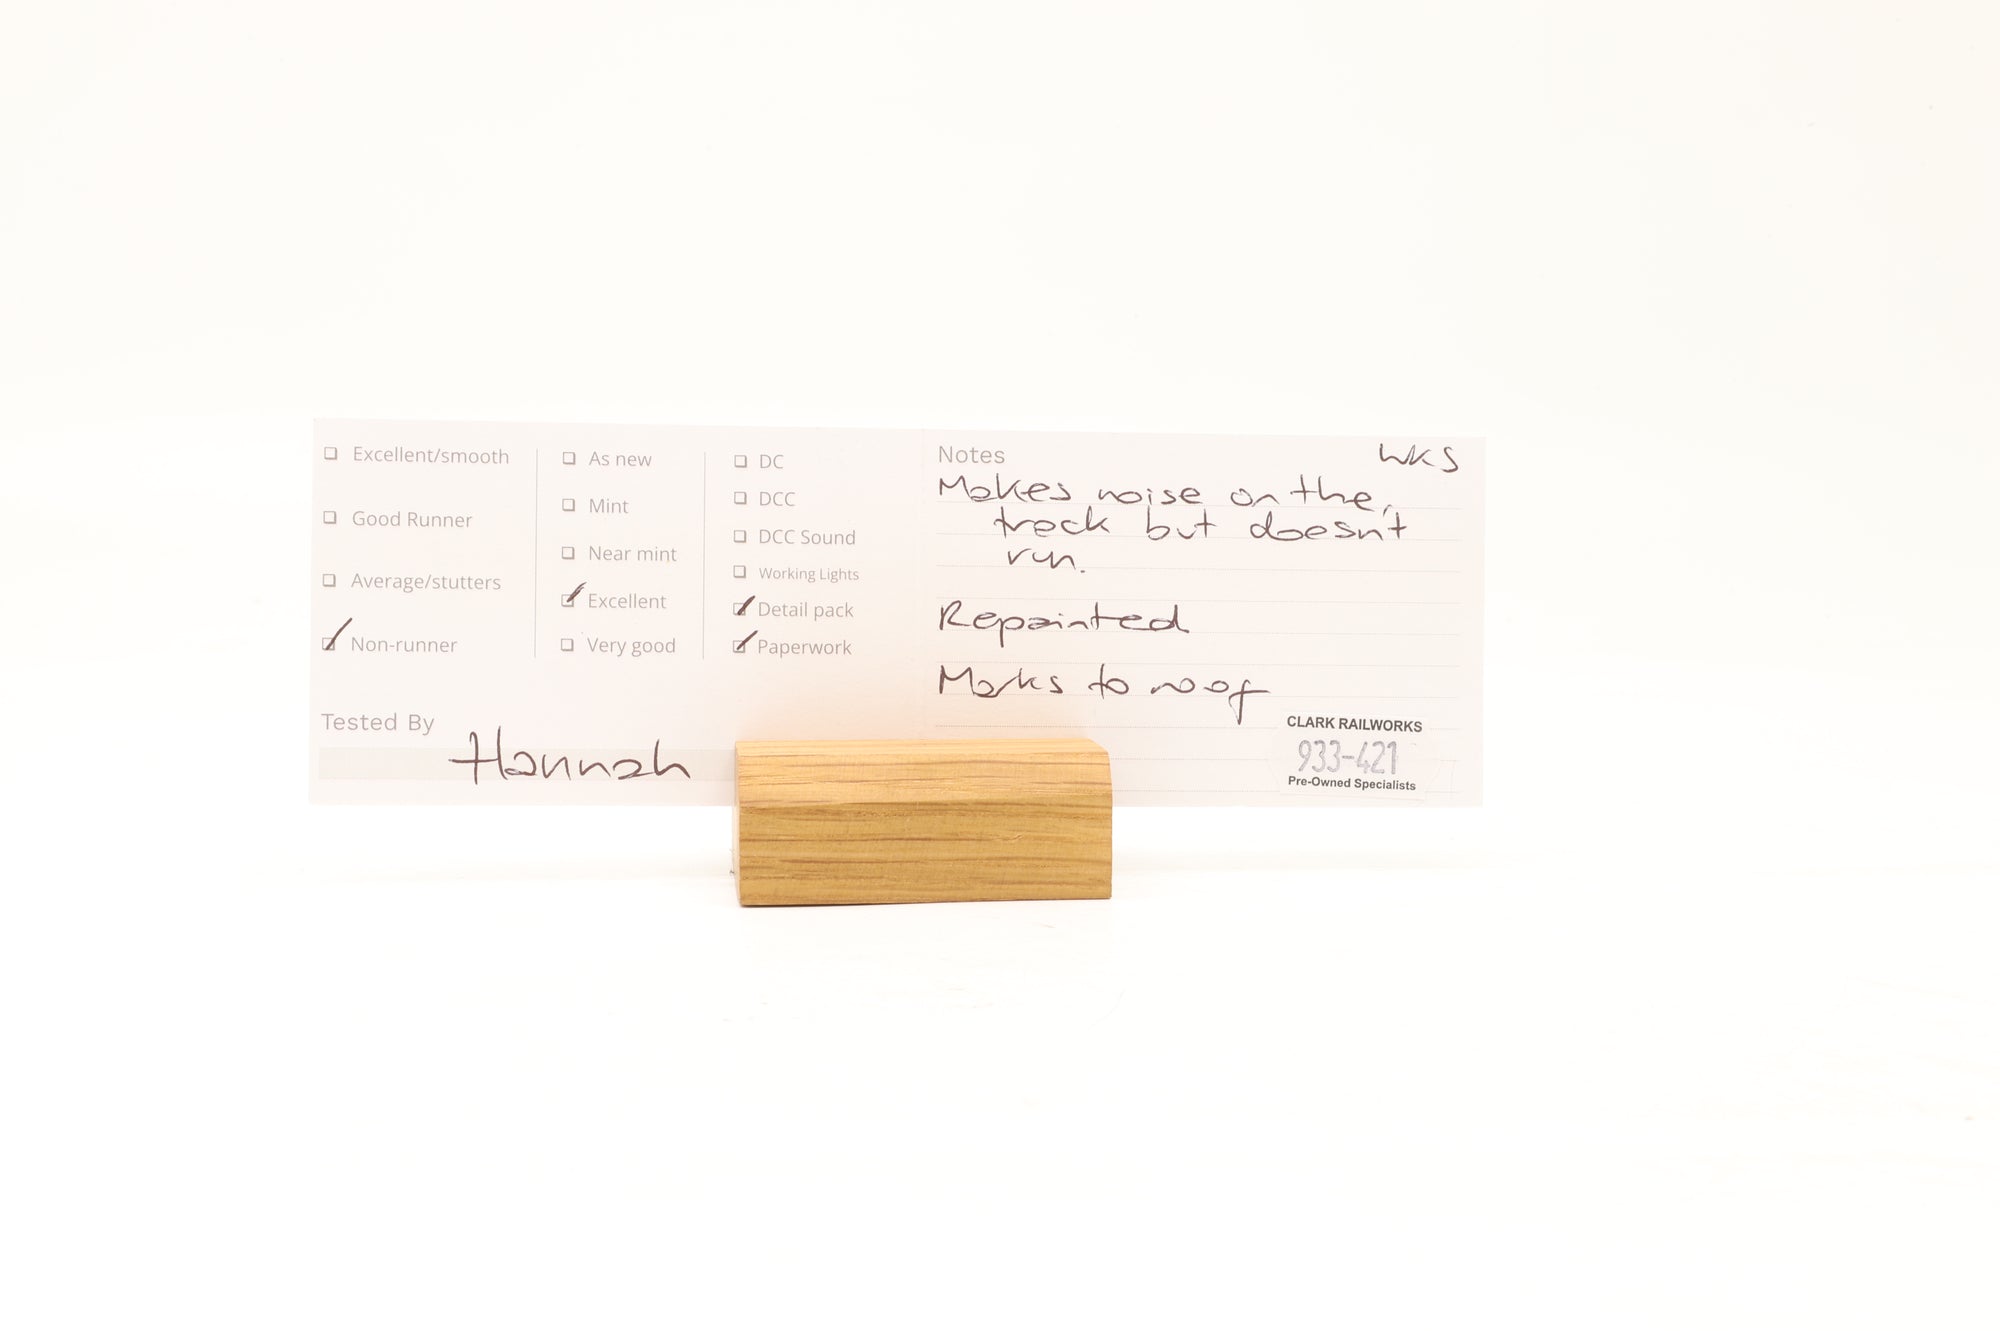 Excellent/smooth
Good Runner
Average/stutters
Non-runner
As new
Mint
Near mint
Excellent
Very good
DC
DCC
DCC Sound
Working Lights
Detail pack
Paperwork
Tested By
Hannah
Notes
WKS
Makes noise on the
track but doesn't
run.
Repainted
Marks to roof
CLARK RAILWORKS
933-421
Pre-Owned Specialists